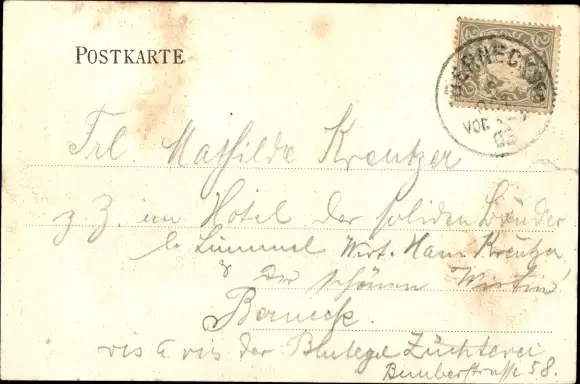 POSTKARTE
BERNECK
VOR
Frl. Mathilde Kreutzer
z. Z. im Hotel der soliden Bänder
b. Lümmel Wirt. Hans Kreutzer
& der schönen Wirtin
Berneck.
vis à vis der Blutegel Züchterei
Bemberstraße 58.